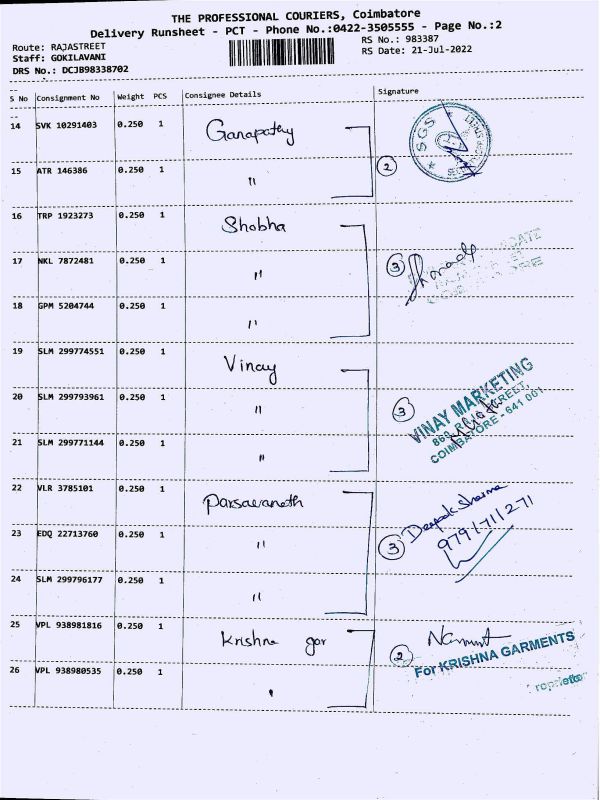 THE PROFESSIONAL COURIERS, Coimbatore
Delivery Runsheet - PCT - Phone No.:0422-3505555 - Page No.:2
Route: RAJASTREET
Staff: GOKILAVANI
DRS No.: DCJB98338702
RS No.: 983387
RS Date: 21-Jul-2022
S No Consignment No Weight PCS Consignee Details Signature
14 SVK 10291403 0.250 1 Ganapathy
SGS
15 ATR 146386 0.250 1 " 2
16 TRP 1923273 0.250 1 Shobha
17 NKL 7872481 0.250 1 " 3
18 GPM 5204744 0.250 1 "
19 SLM 299774551 0.250 1 Vinay
20 SLM 299793961 0.250 1 " 3
VINAY MARKETING
COIMBATORE - 641 001
21 SLM 299771144 0.250 1 "
22 VLR 3785101 0.250 1 Parsavanath
Deepak Sharma
23 EDQ 22713760 0.250 1 " 3
9791711271
24 SLM 299796177 0.250 1 "
25 VPL 938981816 0.250 1 Krishna gar
2
For KRISHNA GARMENTS
26 VPL 938980535 0.250 1 "
roprietor